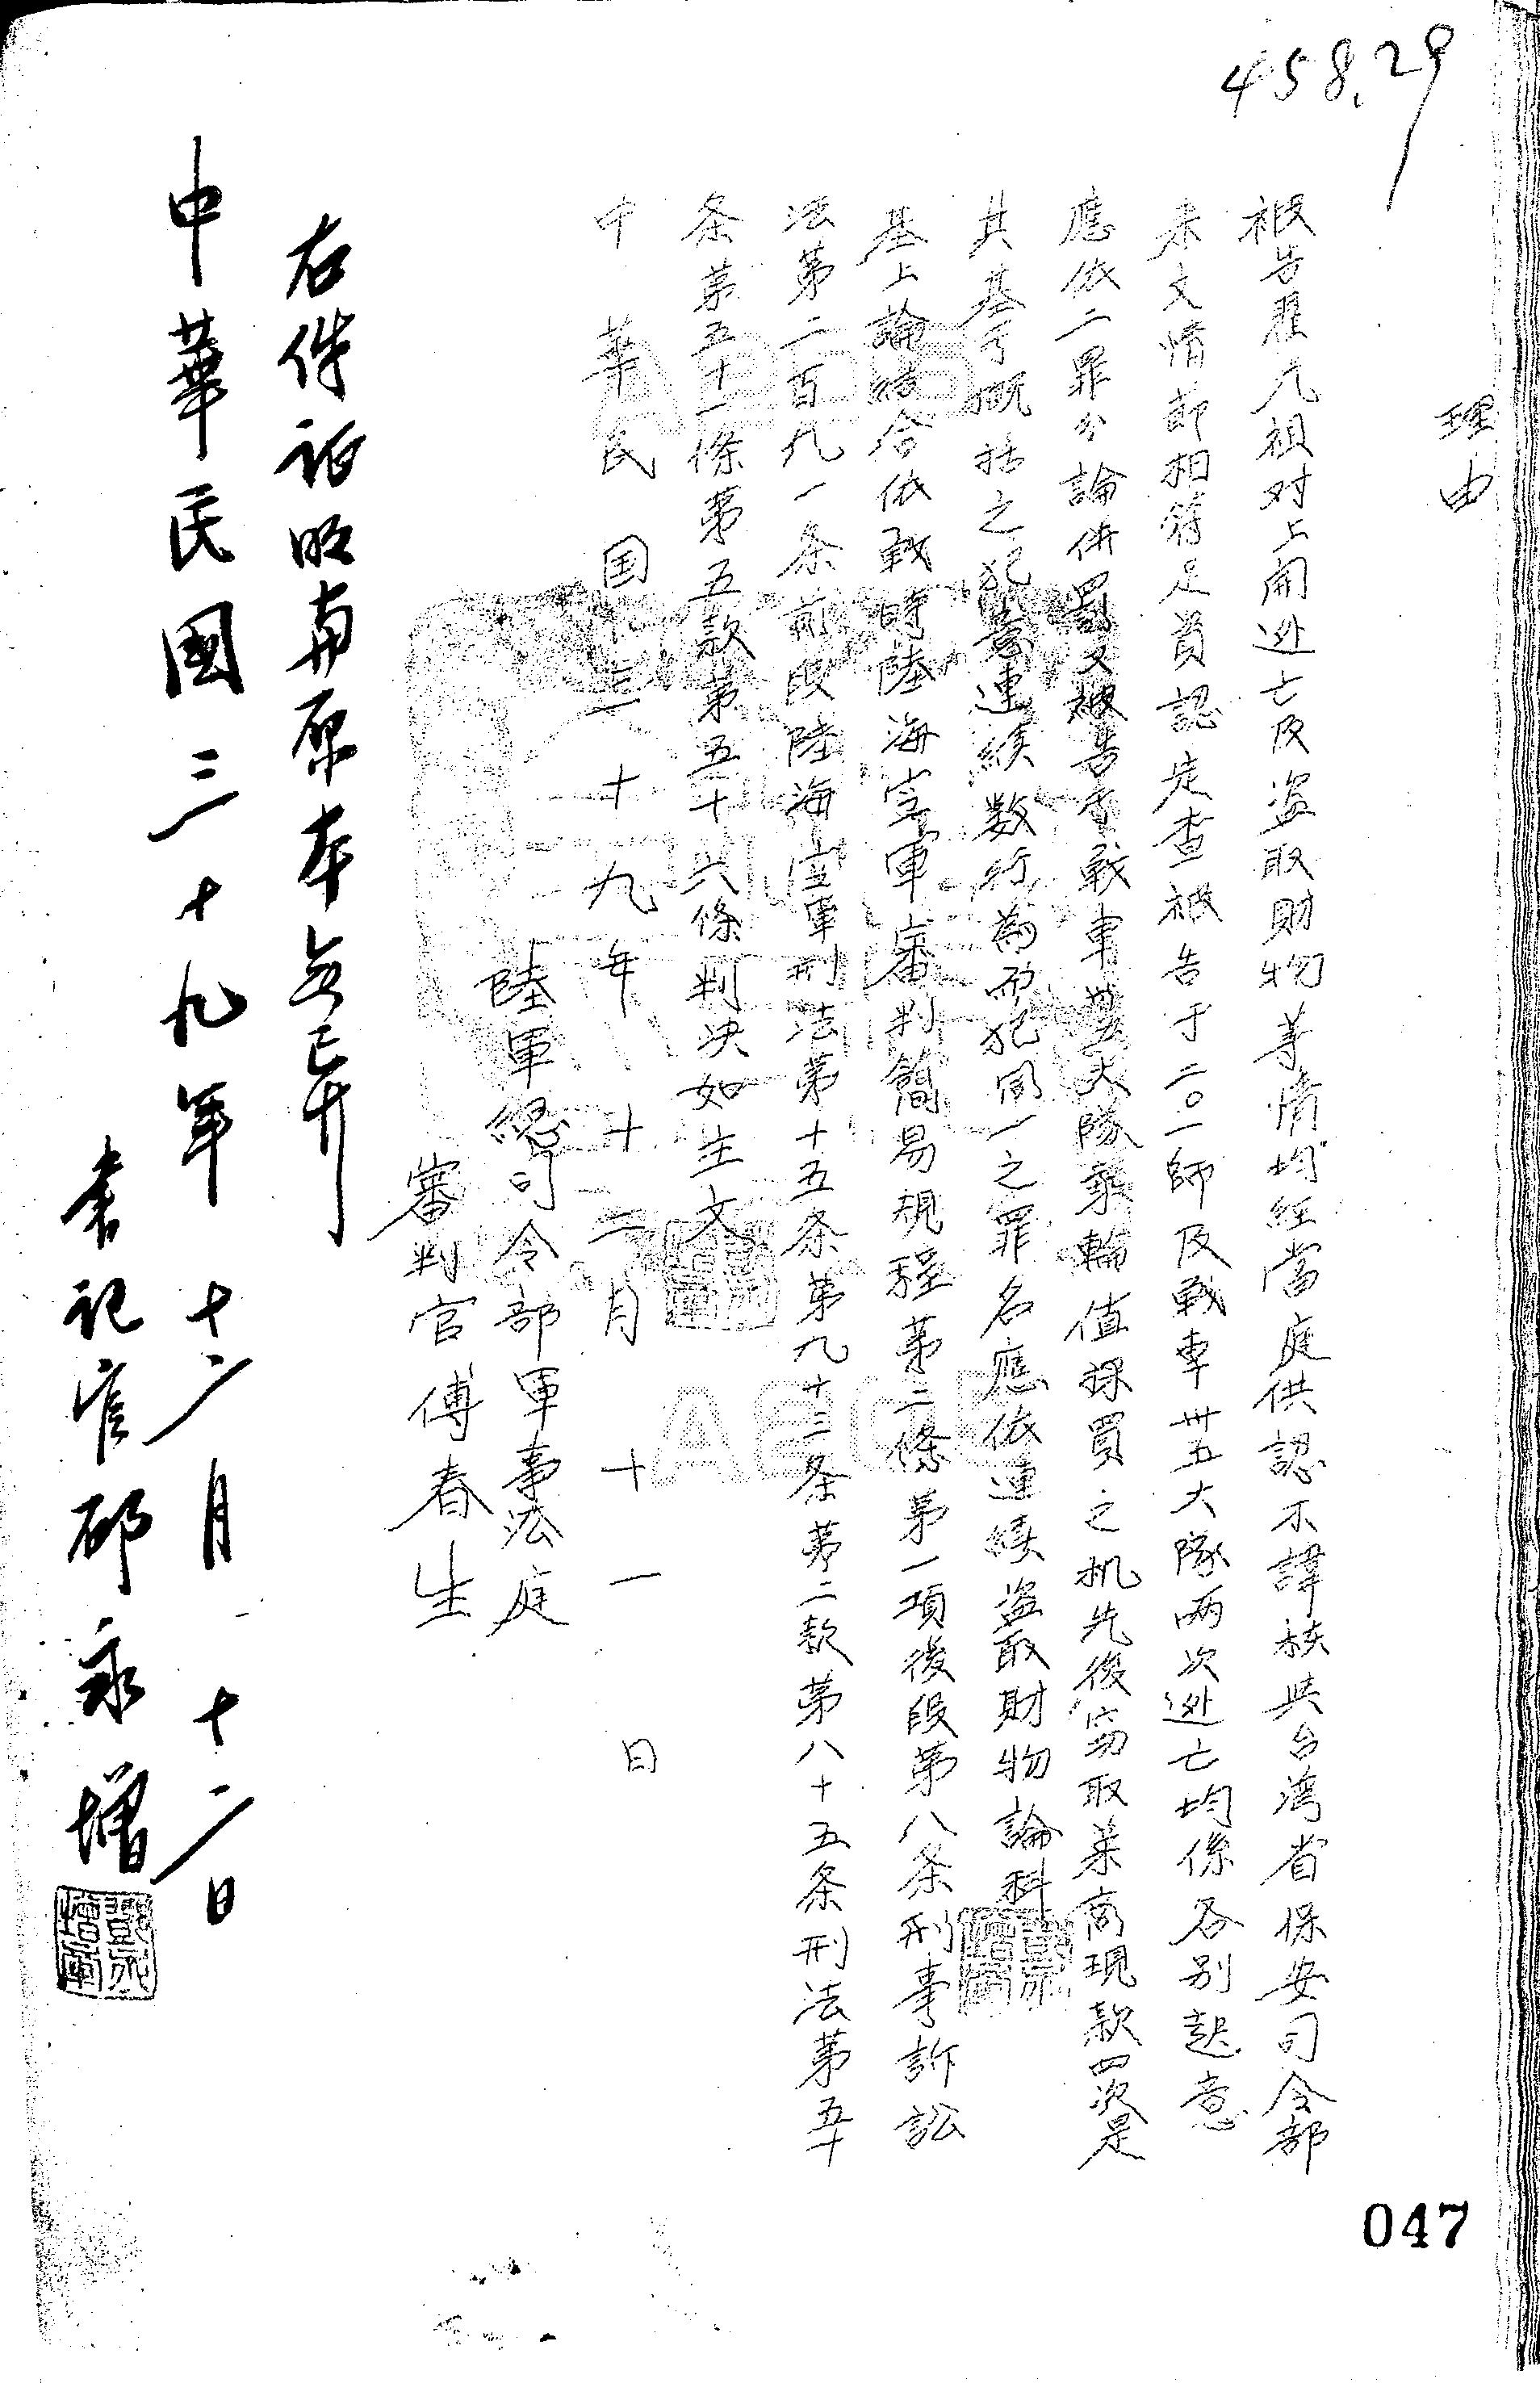 458.29
理由
被告羅九祖对上開逃亡及盗取財物等情均経當庭供認不諱核共台湾省保安司令部
来文情節相符足資認定查被告于二〇一師及戦車卅五大隊両次逃亡均係各別起意
應依二罪分論併罰又被告于戦車卅五大隊乘輪值採買之机先後窃取菜商現款四次是
其基于概括之犯意連続数行為而犯同一之罪名應依連續盗取財物論科
基上論結合依戦時陸海空軍審判簡易規程第二條第一項後段第八条刑事訴訟
法第二百九一条前段陸海空軍刑法第十五条第九十三条第二款第八十五条刑法第五十
条第五十一條第五款第五十六條判决如主文
中華民国三十九年十二月十一日
陸軍總司令部軍事法庭
審判官傅春生
右件証明與原本無異
中華民國三十九年十二月十二日
書記官邱永增
047